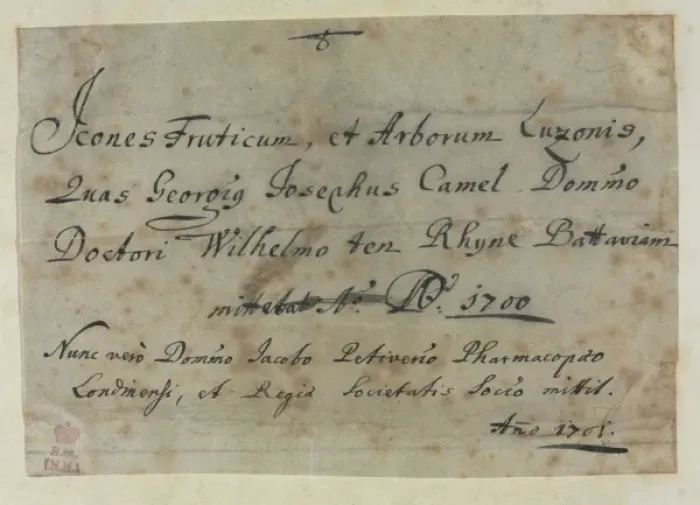 Icones Fruticum, et Arborum Luzonis,
Quas Georgiꝰ Josephus Camel Dom̃no
Doctori Wilhelmo ten Rhyne Battaviam
mittebat Aº. Dⁿⁱ. 1700
Nunc verò Dom̃no Jacobo Petiverio Pharmacopæo
Londinensi, et Regiæ Societatis Socio mittit.
Año 1701.
B.M.